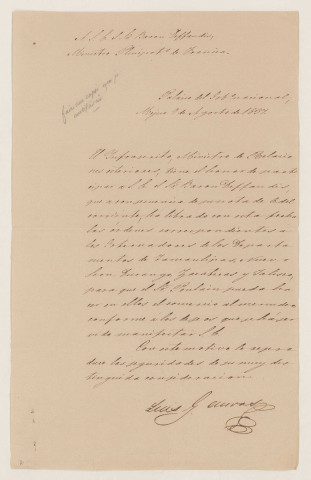 A S. E. el Sr. Baron Deffaudis,
Ministro Plenipot.o de Francia.
Palacio del Gob. Nacional,
Mejico Agosto de 1837.
El Infrascrito Ministro de Relacio
nes esteriores, tiene el honor de parti
cipar á S. E. el Sr. Baron Deffaudis,
que á consecuencia de su nota de del
corriente, ha librado con esta fecha
las órdenes correspondientes a
los Gobernadores de los Departa
mentos de Tamaulipas, Nuevo
Leon, Durango, Zacatecas y Jalisco,
para que el Sr. pueda ha
cer en ellos el comercio al menudeo
conforme a los deseos que se ha ser
vido manifestar S. E.
Con este motivo le repro
duce las seguridades de su muy dis
tinguida consideracion.
Luis G. Cuevas